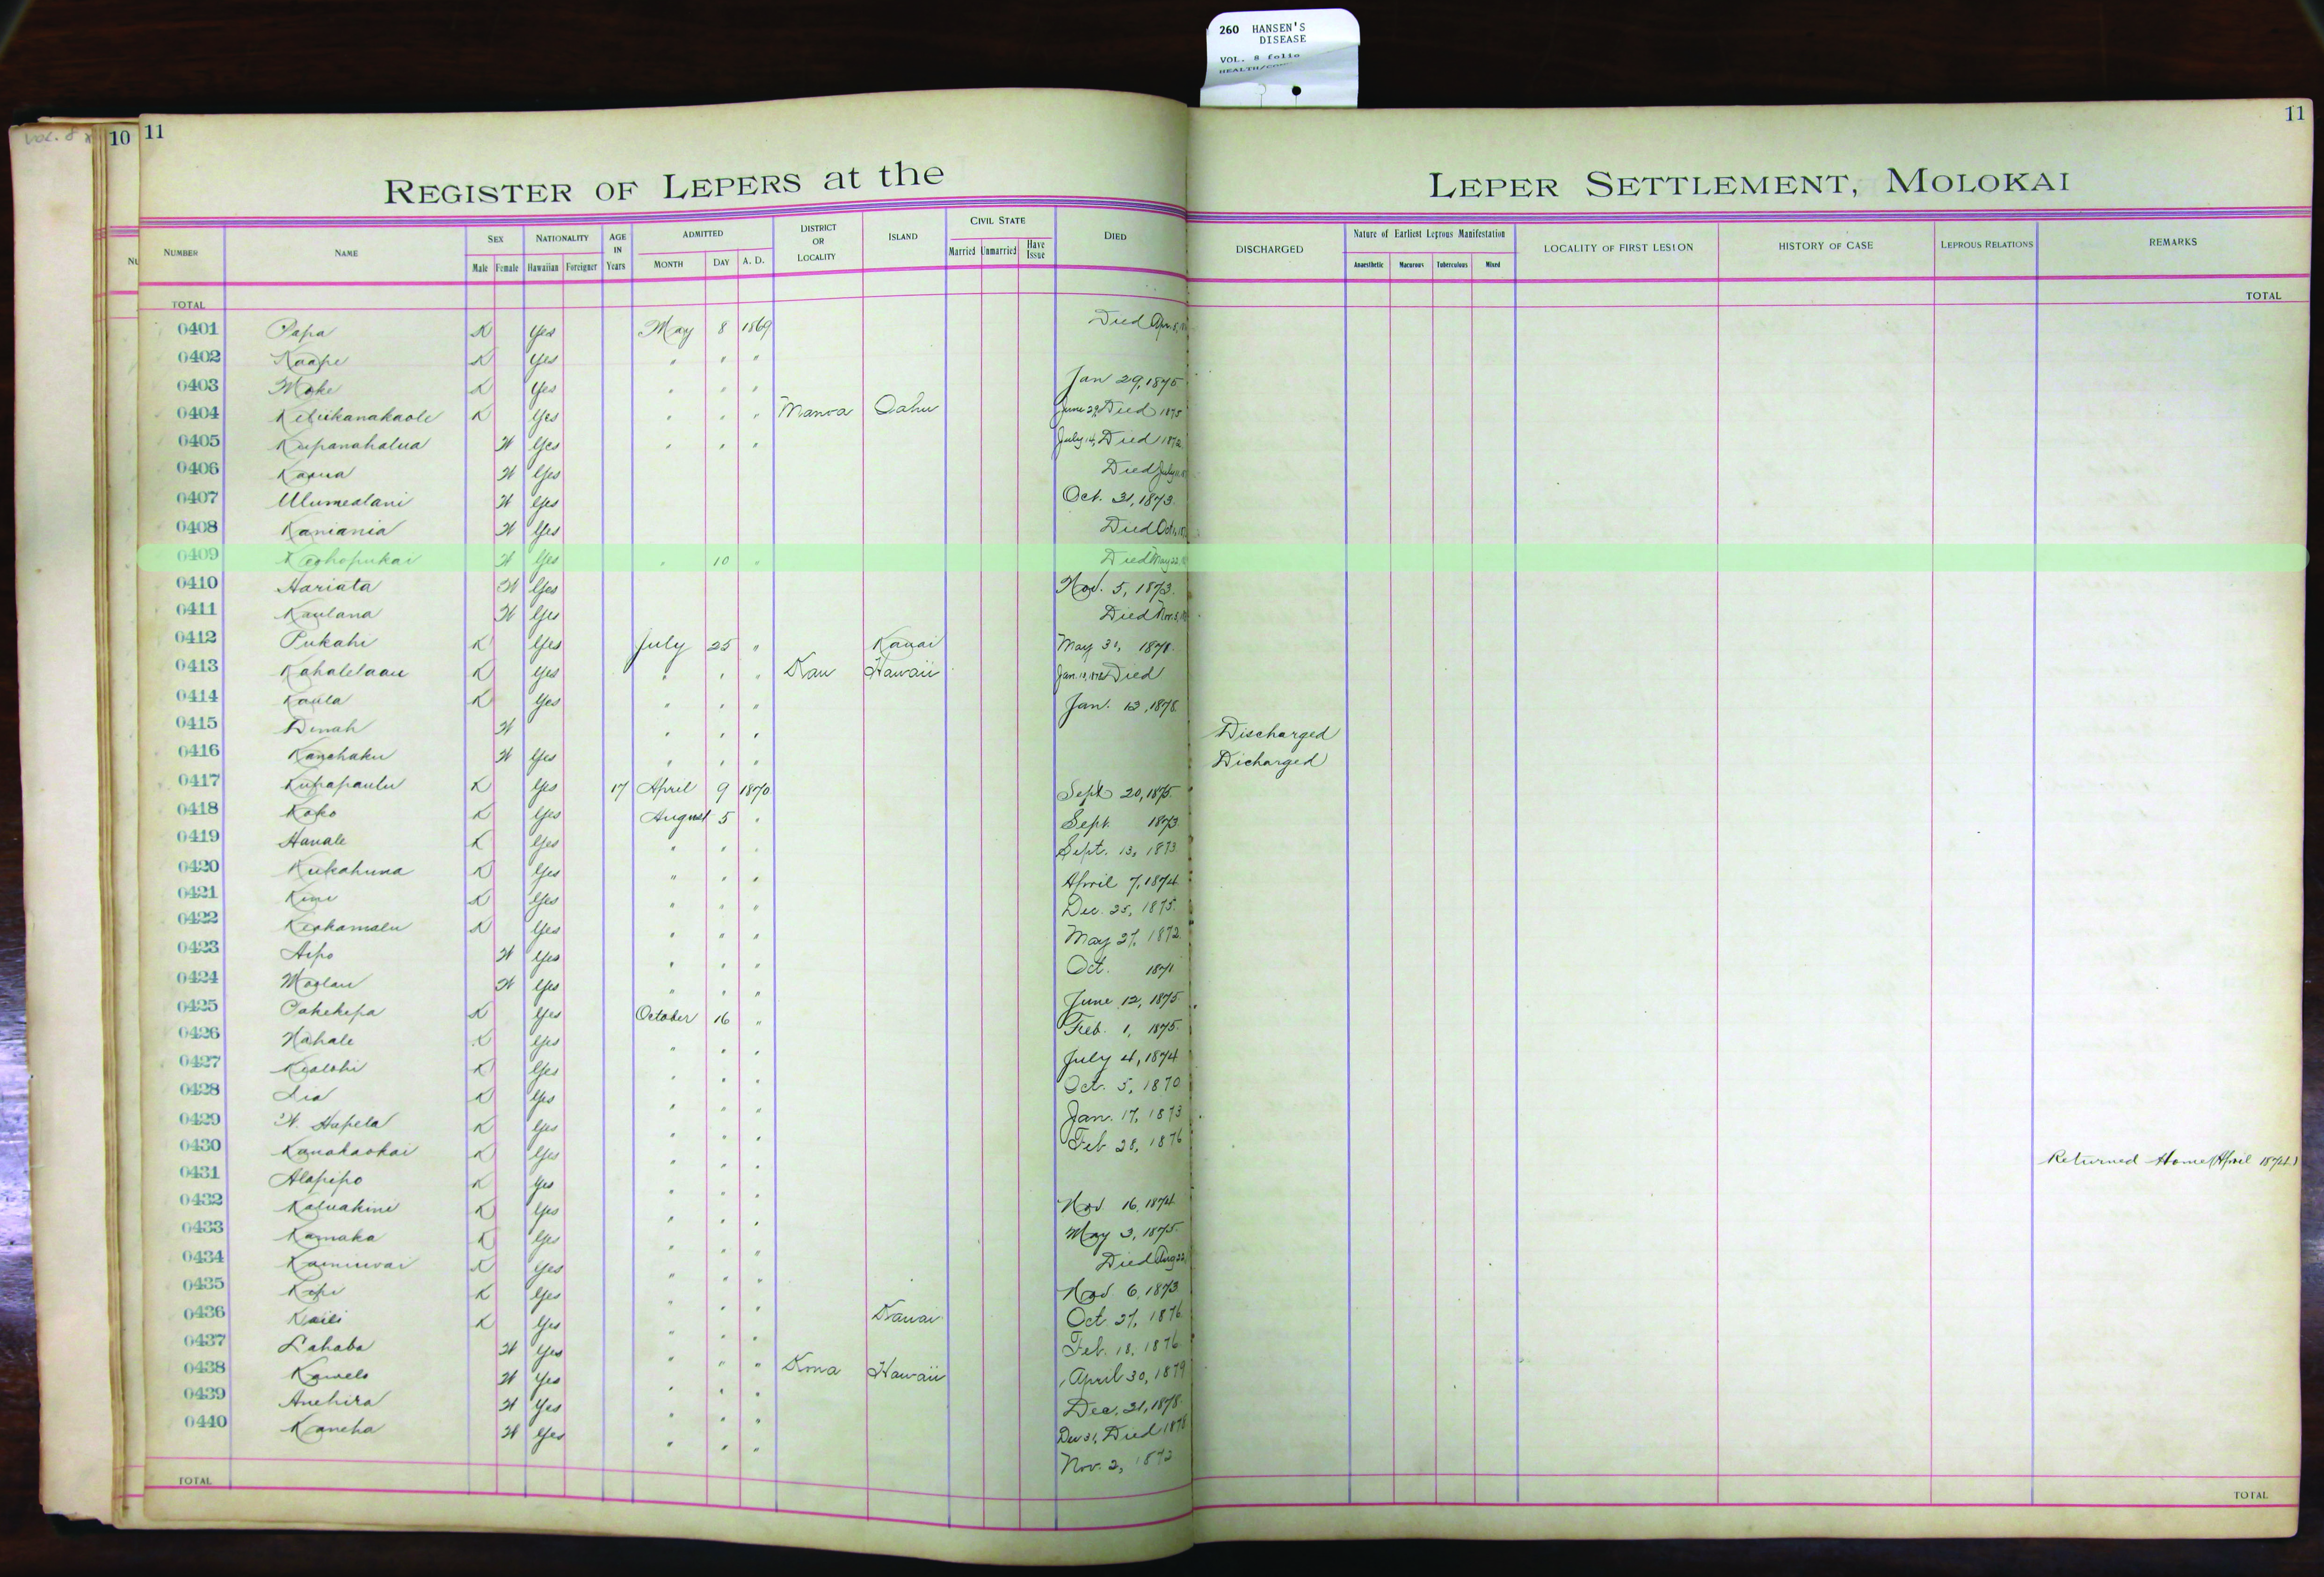 260 HANSEN'S
DISEASE
VOL. 8 folio
Vol. 8
10 11
11
REGISTER OF LEPERS at the LEPER SETTLEMENT, MOLOKAI
NUMBER NAME SEX NATIONALITY AGE IN Years ADMITTED DISTRICT OR LOCALITY ISLAND CIVIL STATE DIED DISCHARGED Nature of Earliest Leprous Manifestation LOCALITY OF FIRST LESION HISTORY OF CASE LEPROUS RELATIONS REMARKS
Male Female Hawaiian Foreigner MONTH DAY A. D. Married Unmarried Have Issue Anaesthetic Macurous Tuberculous Mixed
TOTAL TOTAL
0401 Papa K Yes May 8 1869 Died Apr. 8,
0402 Kaape K Yes " " "
0403 Moke K Yes " " " Jan 29, 1875
0404 Keliikanakaole K Yes " " " Manoa Oahu June 29, Died 1875
0405 Kupanahalua W Yes " " " July 14, Died 1872
0406 Kaoua W Yes Died July
0407 Ulumealani W Yes Oct. 31, 1873.
0408 Kaniania W Yes Died Oct
0409 Keohopukai W Yes " 10 " Died May 22,
0410 Hariata W Yes Nov. 5, 1873.
0411 Kaulana W Yes Died Nov. 3,
0412 Pukahi K Yes July 25 " Kauai May 31, 1878.
0413 Kahalelaau K Yes " " " Kau Hawaii Jan. Died
0414 Kaula K Yes " " " Jan. 12, 1878.
0415 Dinah W " " " Discharged
0416 Kanehaku W Yes " " " Dicharged
0417 Kupapaulu K Yes 17 April 9 1870 Sept 20, 1875.
0418 Koko K Yes August 5 " Sept. 1873
0419 Hanale K Yes " " " Sept. 13, 1873
0420 Kukahuna K Yes " " " April 7, 1874
0421 Kini K Yes " " " Dec. 25, 1875.
0422 Keakamalu K Yes " " " May 27, 1872.
0423 Aipo W Yes " " " Oct. 1871
0424 Moolau W Yes " " " June 12, 1875
0425 Pahekepa K Yes October 16 " Feb. 1, 1875.
0426 Nahale K Yes " " " July 4, 1874
0427 Kealohi K Yes " " " Oct. 5, 1870
0428 Lia K Yes " " " Jan. 17, 1873
0429 W. Hapela K Yes " " " Feb 28, 1876
0430 Kanakaokai K Yes " " " Returned Home (April 1874.)
0431 Alapipo K Yes " " " Nov 16, 1874
0432 Kaluakini K Yes " " " May 3, 1875.
0433 Kamaka K Yes " " " Died Aug 22,
0434 Kainiwai K Yes " " " Nov. 6, 1873
0435 Kepi K Yes " " " Oct. 27, 1876
0436 Kaili K Yes " " " Kauai Feb. 18, 1876
0437 Lahaba W Yes " " "
0438 Kawelo W Yes " " " Kona Hawaii April 30, 1879
0439 Anehira W Yes " " " Dec. 31, 1878.
0440 Kaneha W Yes " " " Dec 31, Died 1878
Nov. 2, 1872
TOTAL TOTAL